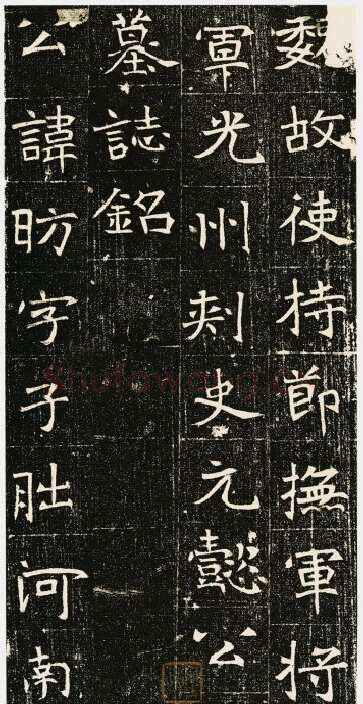 魏故使持節撫軍將
軍光州刺史元懿公
墓誌銘
公諱昉字子朏河南